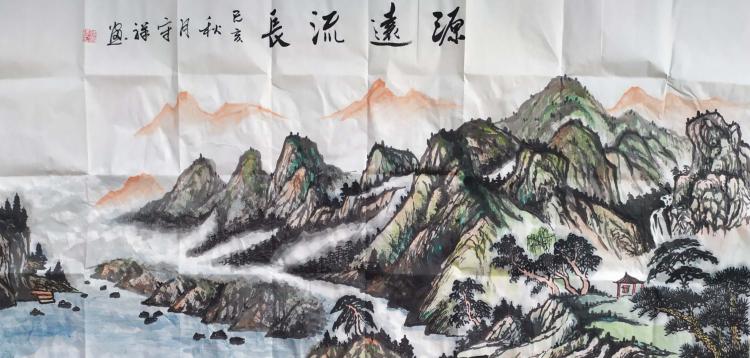 源遠流長
己亥秋月守祥畫